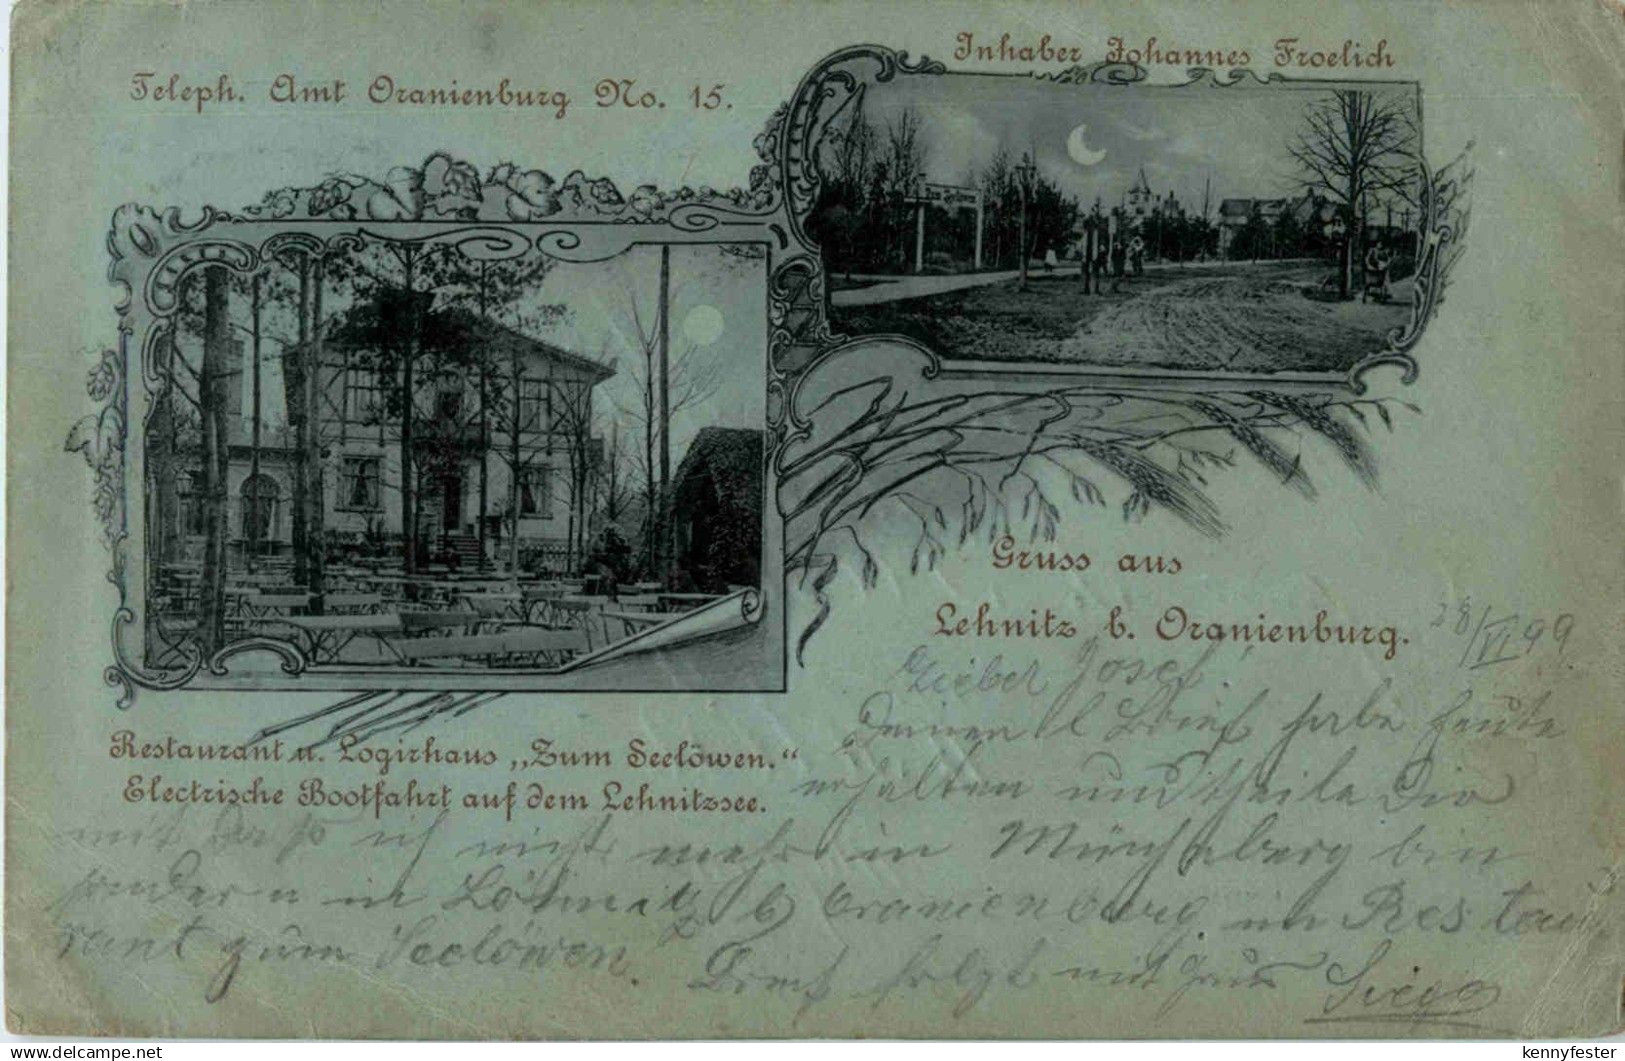 Teleph. Amt Oranienburg No. 15.
Inhaber Johannes Froelich
Gruss aus
Lehnitz b. Oranienburg.
28/VI 99
Restaurant u. Logirhaus „Zum Seelöwen.“
Electrische Bootfahrt auf dem Lehnitzsee.
Lieber Josef!
Deinen l Brief habe heute
erhalten und theile Dir
mit daß ich nicht mehr in Müncheberg bin
sondern in Löhnitz b Oranienburg im Restau
rant zum Seelöwen.
Brief folgt mit Gruss
kennyfester